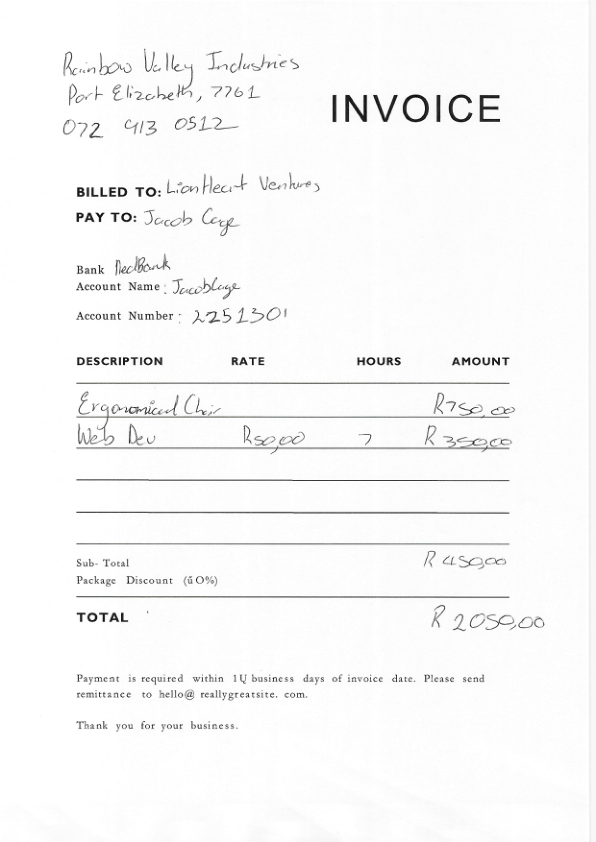 Rainbow Valley Industries
Port Elizabeth, 7761
072 413 0512
INVOICE
BILLED TO: LionHeart Ventures
PAY TO: Jacob Cage
Bank NedBank
Account Name: Jacob Cage
Account Number: 2251301
DESCRIPTION RATE HOURS AMOUNT
Ergonomical Chair R750,00
Web Dev R50,00 7 R 350,00
Sub-Total R 450,00
Package Discount ( 0%)
TOTAL R 2050,00
Payment is required within business days of invoice date. Please send
remittance to hello@ reallygreatsite. com.
Thank you for your business.